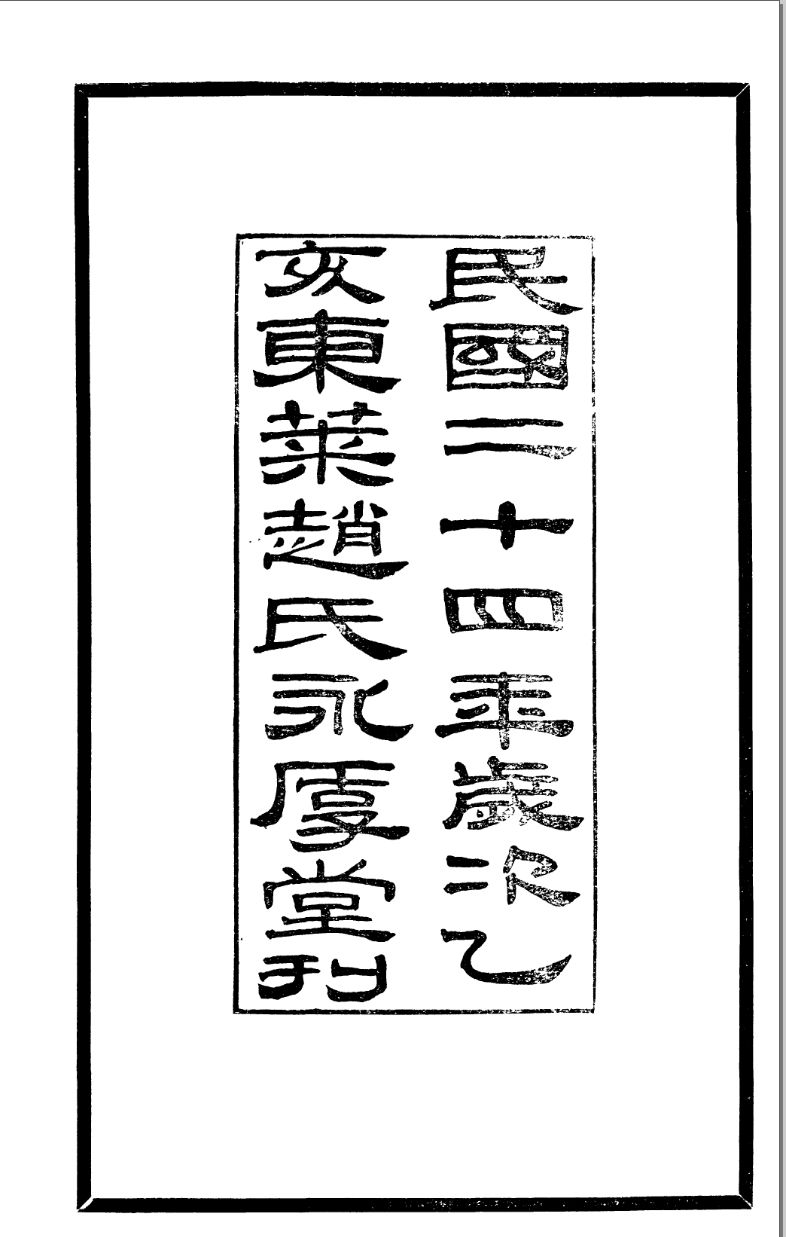 民國二十四年歲次乙
亥東萊趙氏永厚堂刊